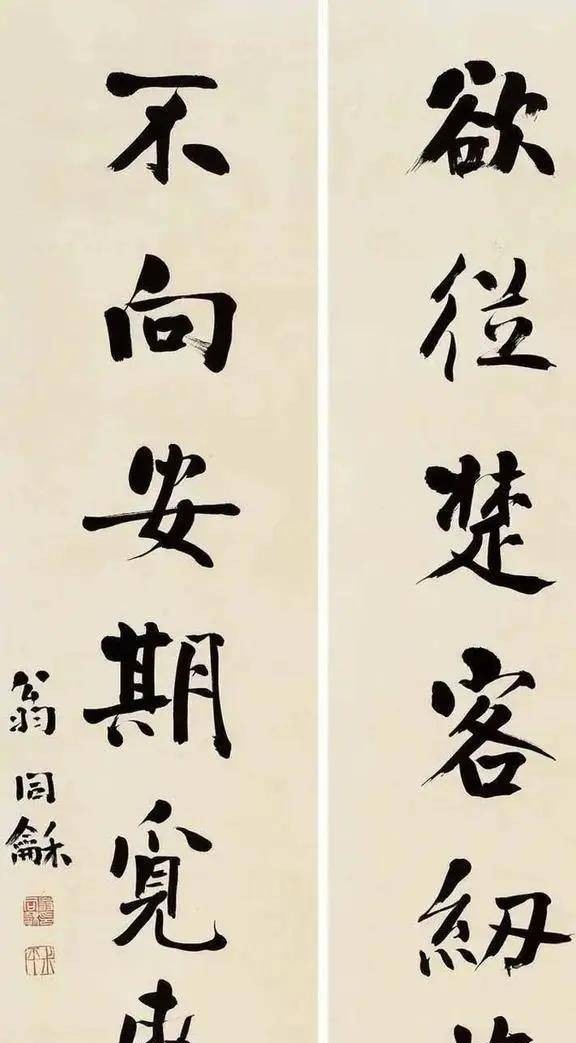 欲従楚客紉
不向安期覓
翁同龢